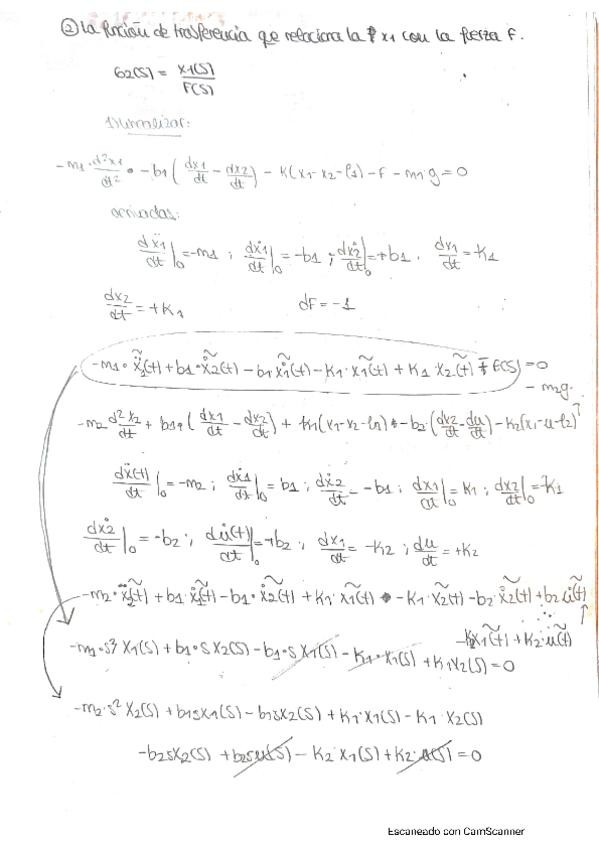 ② La función de trasferencia que relaciona la x1 con la fuerza F.
G2(S) = X1(S)/F(S)
1) Linealizar:
-m1·d²x1/dt² · -b1(dx1/dt - dx2/dt) - K(x1-x2-l1) - F - m1·g = 0
derivadas:
dẍ1/dt|₀ = -m1 ; dẋ1/dt|₀ = -b1 ; dẋ2/dt|₀ = +b1 . dx1/dt = -K1
dx2/dt = +K1 dF = -1
-m1·ẍ1(t) + b1·ẋ2(t) - b1 ẋ1(t) - K1·x1(t) + K1 x2(t) ∓ F(S) = 0
- m2g.
-m2 d²x2/dt + b1·(dx1/dt - dx2/dt) + K1(x1-x2-l1) - b2·(dx2/dt - du/dt) - K2(x1-u-l2)
dẍ(t)/dt|₀ = -m2 ; dẋ1/dt|₀ = b1 ; dẋ2/dt = -b1 ; dx1/dt|₀ = K1 ; dx2/dt|₀ = -K1
dẋ2/dt|₀ = -b2 ; du̇(t)/dt|₀ = +b2 ; dx1/dt = -K2 ; du/dt = +K2
-m2·ẍ2(t) + b1·ẋ1(t) - b1·ẋ2(t) + K1·x1(t) - K1·x2(t) - b2·ẋ2(t) + b2 u̇(t)
-K2x1(t) + K2·u(t)
-m1·s² X1(S) + b1·S X2(S) - b1·S X1(S) - K1·X1(S) + K1X2(S) = 0
-m2·s² X2(S) + b1sX1(S) - b1sX2(S) + K1·X1(S) - K1·X2(S)
-b2sX2(S) + b2su(S) - K2·X1(S) + K2·u(S) = 0
Escaneado con CamScanner